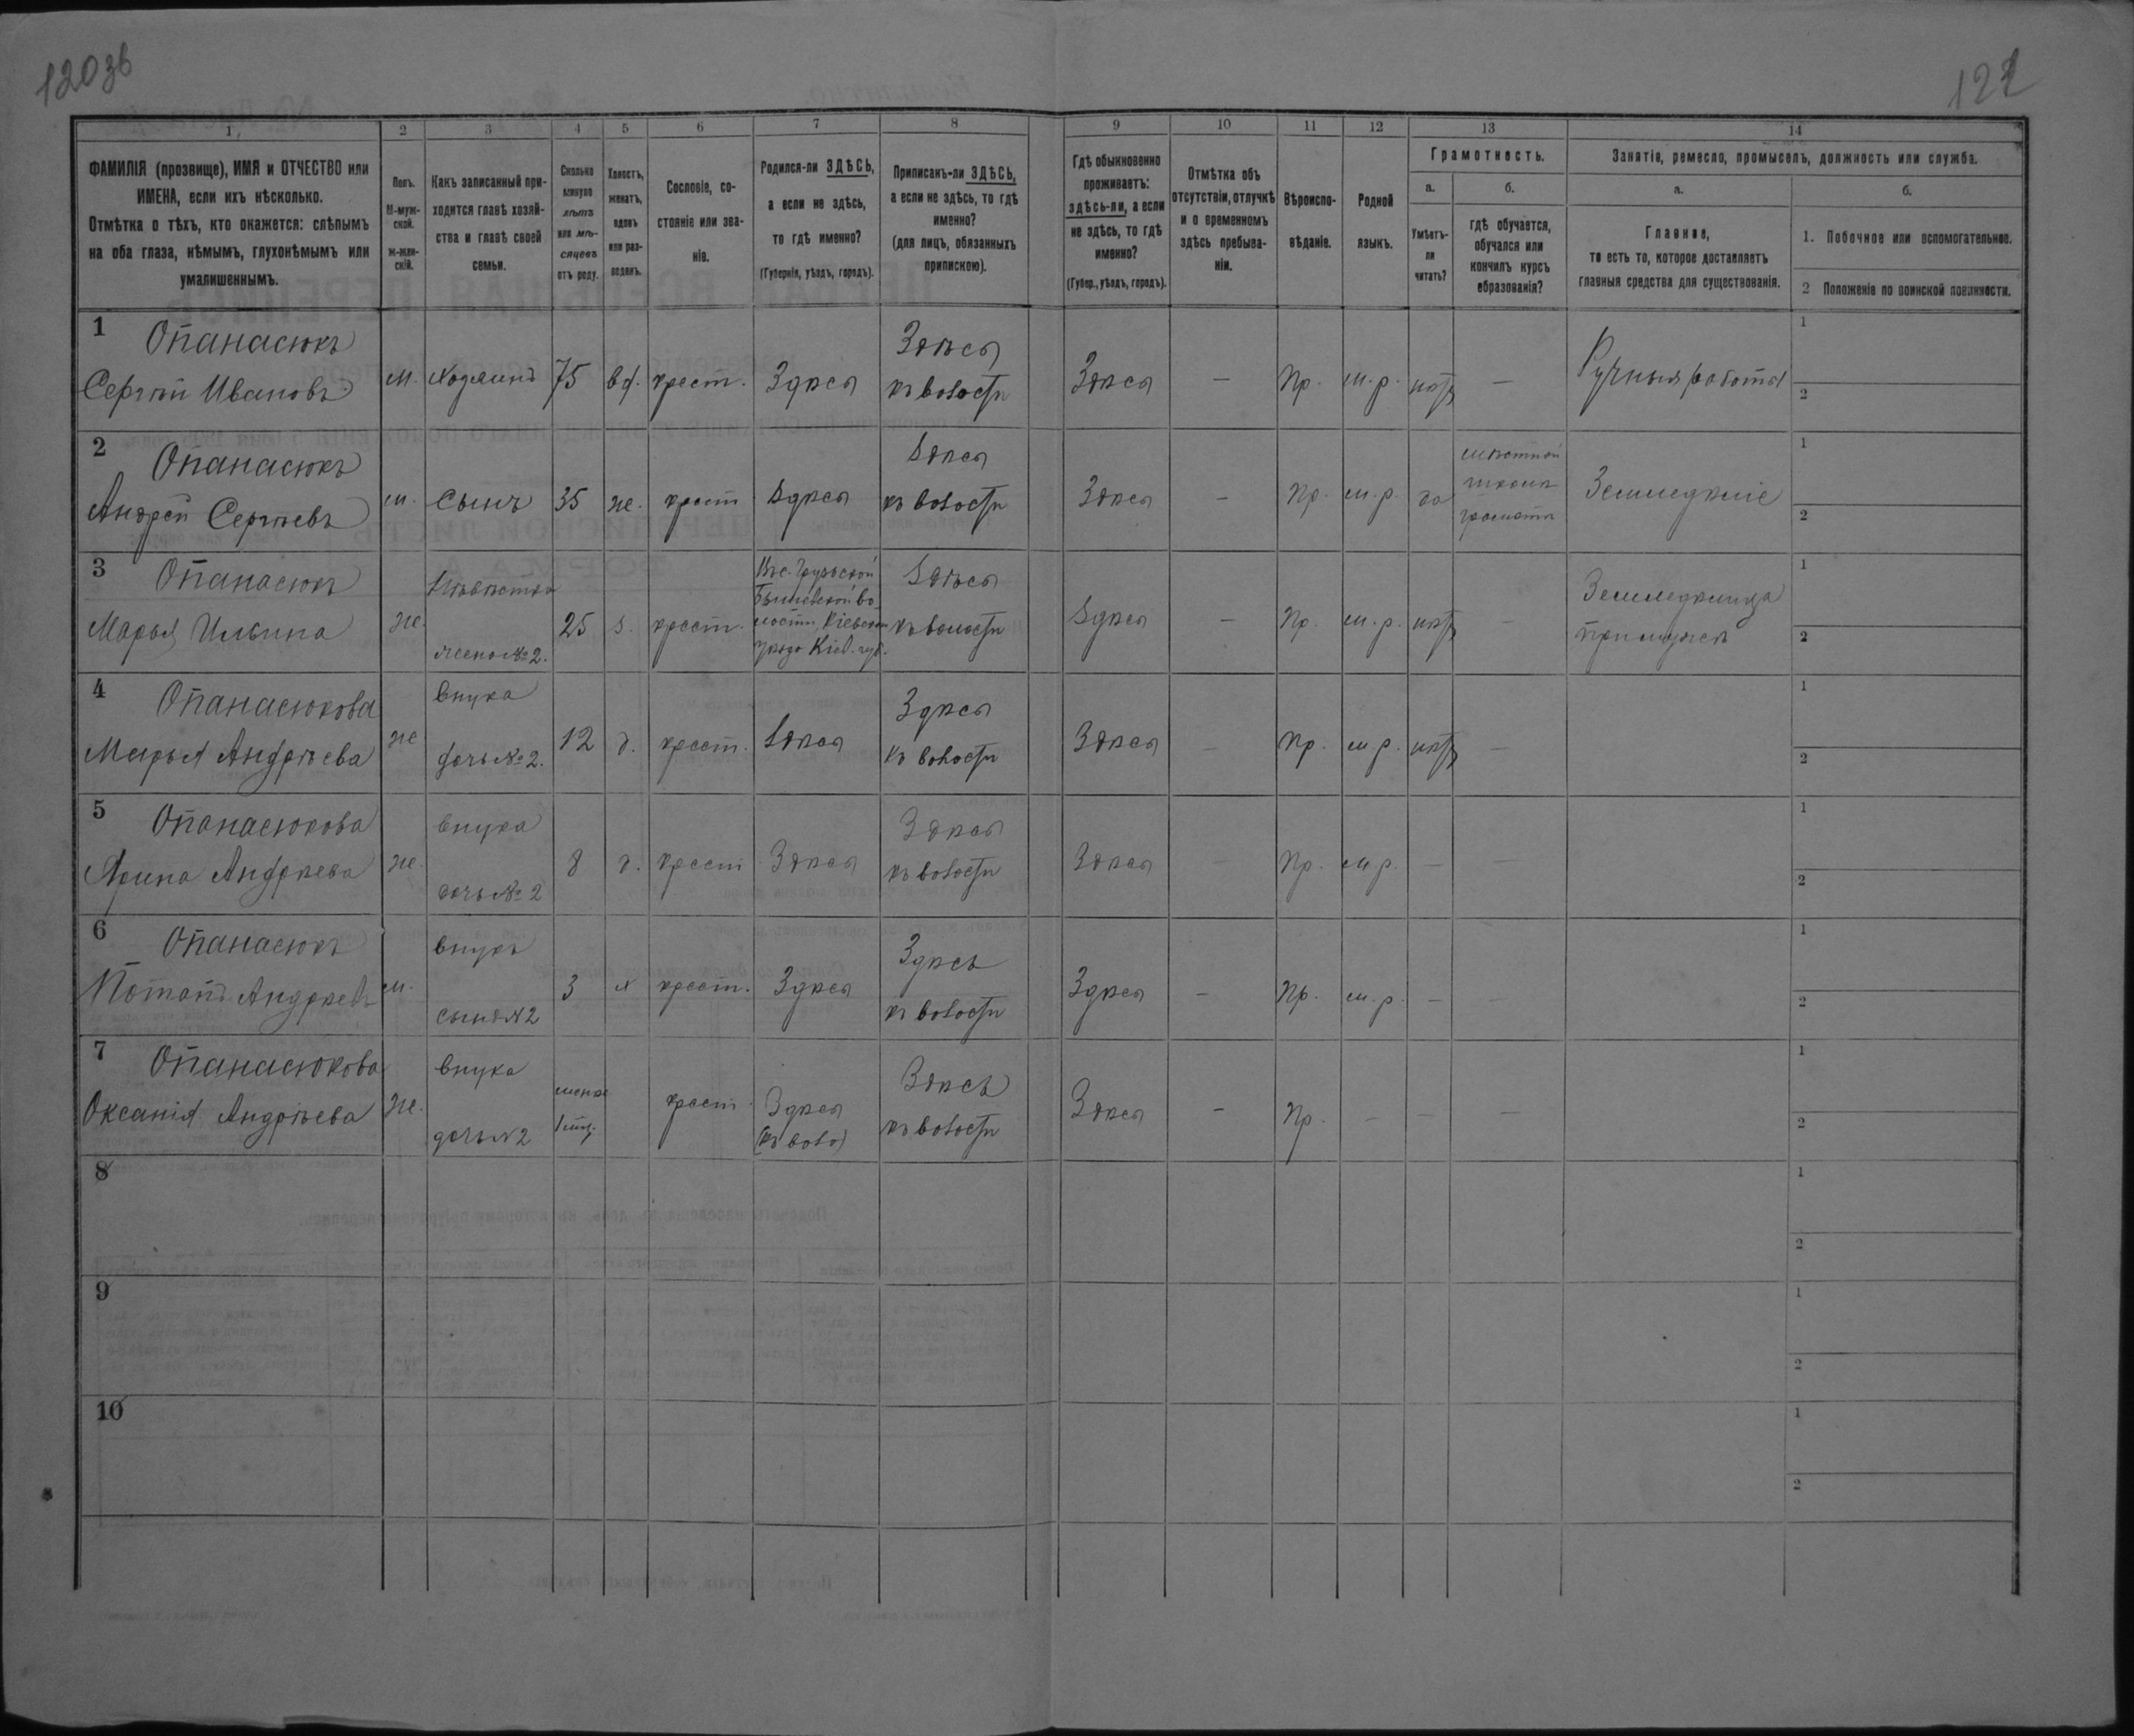 1203б
122
1
2
3
4
5
6
7
8
9
10
11
12
13
14
ФАМИЛІЯ (прозвище), ИМЯ и ОТЧЕСТВО или
ИМЕНА, если ихъ нѣсколько.
Отмѣтка о тѣхъ, кто окажется: слѣпымъ
на оба глаза, нѣмымъ, глухонѣмымъ или
умалишеннымъ.
Полъ.
М-муж-
ской.
Ж-жен-
скій.
Какъ записанный при-
ходится главѣ хозяй-
ства и главѣ своей
семьи.
Сколько
минуло
лѣтъ
или мѣ-
сяцевъ
отъ роду.
Холостъ,
женатъ,
вдовъ
или раз-
веденъ.
Сословіе, со-
стояніе или зва-
ніе.
Родился-ли ЗДѢСЬ,
а если не здѣсь,
то гдѣ именно?
(Губернія, уѣздъ, городъ).
Приписанъ-ли ЗДѢСЬ,
а если не здѣсь, то гдѣ
именно?
(для лицъ, обязанныхъ
припискою).
Гдѣ обыкновенно
проживаетъ:
здѣсь-ли, а если
не здѣсь, то гдѣ
именно?
(Губер., уѣздъ, городъ).
Отмѣтка объ
отсутствіи, отлучкѣ
и о временномъ
здѣсь пребыва-
ніи.
Вѣроиспо-
вѣданіе.
Родной
языкъ.
Грамотность.
а.
Умѣетъ-
ли
читать?
б.
гдѣ обучается,
обучался или
кончилъ курсъ
образованія?
Занятіе, ремесло, промыселъ, должность или служба.
а.
Главное,
то есть то, которое доставляетъ
главныя средства для существованія.
б.
1. Побочное или вспомогательное.
2 Положеніе по воинской повинности.
1 Опанасюкъ
Сергѣй Ивановъ м. Хозяинъ 75 вд. крест. Здѣсь Здѣсь
къ волости Здѣсь — Пр. м.р. нѣтъ — Ручныя работы 1
2
2 Опанасюкъ
Андрей Сергѣевъ м. Сынъ 35 же. крест Здѣсь Здѣсь
къ волости Здѣсь — Пр. м.р. да
школѣ
грамотѣ
Земледѣліе 1
2
3 Опанасюкъ
Марья Ильина же. Невѣстка
жена №2. 25 з. крест.
Въ с. Грузской
Бышевской во-
лости, Кіевскаго
уѣзда Кіев. губ.
Здѣсь
къ волости Здѣсь — Пр. м.р. нѣтъ — Земледѣлица
при мужѣ 1
2
4 Опанасюкова
Марья Андрѣева же внука
дочь №2. 12 д. крест. Здѣсь Здѣсь
къ волости Здѣсь — Пр. м.р. нѣтъ — 1
2
5 Опанасюкова
Арина Андрѣева же. внука
дочь №2 8 д. крест Здѣсь Здѣсь
къ волости Здѣсь — Пр. м.р. — — 1
2
6 Опанасюкъ
Потапъ Андрѣевъ м. внукъ
сынъ №2 3 х крест. Здѣсь Здѣсь
къ волости Здѣсь — Пр. м.р. — — 1
2
7 Опанасюкова
Оксанія Андрѣева же. внука
дочь №2 менѣе
1 мц. крест. Здѣсь
(къ воло) Здѣсь
къ волости Здѣсь — Пр. — — — 1
2
8 1
2
9 1
2
10 1
2